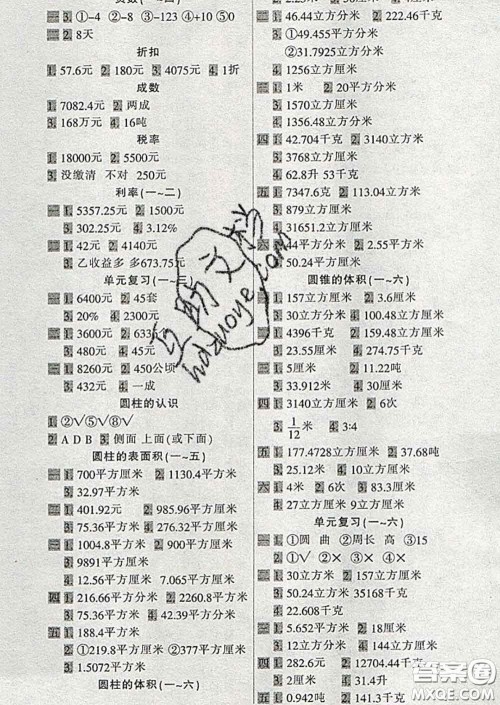 二 1. ①-4 ②-8 ③-123 ④+10 ⑤0
二 2. 8天
折扣
1. 57.6元 2. 180元 3. 4075元 4. 1折
成数
一 1. 7082.4元 2. 两成
3. 168万元 4. 16吨
税率
一 1. 18000元 2. 5500元
二 没缴清 不对 250元
利率(一~二)
一 1. 5357.25元 2. 1500元
3. 302.25元 4. 3.12%
二 1. 42元 2. 4140元
3. 乙收益多 多673.75元
单元复习(一~三)
一 1. 6400元 2. 45套
3. 20% 4. 2300元
二 1. 3600元 2. 633元
3. 480元 4. 45元
三 1. 8260元 2. 450公顷
3. 432元 4. 一成
圆柱的认识
1. ②√⑤√⑧√
2. A D B 3. 侧面 上面(或下面)
圆柱的表面积(一~五)
一 1. 700平方厘米 2. 1130.4平方米
3. 32.97平方米
二 1. 401.92元 2. 985.96平方厘米
3. 75.36平方米 4. 276.32平方厘米
三 1. 1004.8平方米 2. 300平方厘米
3. 9891平方厘米
4. 12.56平方厘米 7.065平方厘米
四 1. 216.66平方分米 2. 2260.8平方米
3. 75.36平方米 4. 42.39平方分米
五 1. 188.4平方米
2. ①219.8平方厘米 ②377平方厘米
3. 1.5072平方米
圆柱的体积(一~六)
二 1. 46.44立方分米 2. 222.46千克
3. ①49.455平方分米
②31.7925立方分米
4. 1256立方厘米
三 1. 1米 2. 20平方分米
3. 1570立方厘米
4. 1356.48立方厘米
四 1. 42.704千克 2. 3140立方米
3. 3768立方厘米
4. 62.8升 53千克
五 1. 7347.6克 2. 113.04立方米
3. 879立方厘米
4. 31651.2立方厘米
六 44平方分米 2. 2.55平方米
50.24立方厘米
圆锥的体积(一~六)
一 1. 157立方厘米 2. 3.6厘米
3. 30立方分米 4. 100.48立方厘米
二 1. 4396千克 2. 159.48立方厘米
3. 23.55厘米 4. 274.75千克
三 1. 5厘米 2. 11.22吨
3. 33.912 4. 30厘米
四 1. 3140立方厘米 2. 6次
3. 1/12米 4. 3:4
五 1. 177.4728立方厘米 2. 37.68吨
3. 32立方厘米 4. 10立方厘米
六 1. 4米 2. 6次 3. 83.3厘米
4. 27立方厘米 9立方厘米
单元复习(一~六)
一 1. ①圆 曲 ②周长 高 ③15
2. ①√ ②× ③× ④×
二 1. 30立方分米 2. 157立方厘米
3. 251.2立方分米 35168千克
4. 22.608千克
三 1. 5.652平方米 2. 18厘米
3. 12立方分米 4. 144立方厘米
四 1. 282.6元 2. 12704.44千克
3. 2厘米 4. 31.4升
五 1. 0.942吨 2. 141.3千克
互助文档
hdzuoye.com
答案圈
MXQE.COM